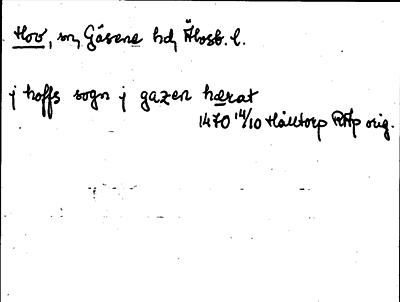 Hov, sn, Gäsene hd, Älvsb. l.
j hoffs sogn j gazen hærat
1470 14/10 Hålltorp RAp orig.